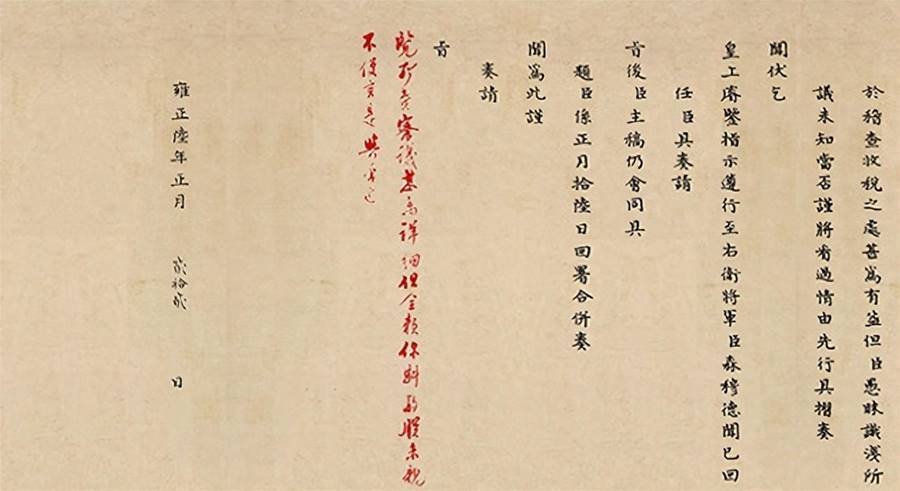 於稽查收稅之處甚為有益但臣愚昧識淺所
議未知當否謹將看過情由先行具摺奏
聞伏乞
皇上睿鑒指示遵行至右衛將軍臣
聞已回
任臣具奏請
旨後臣主稿仍會同具
題臣係正月拾陸日回署合併奏
聞為此謹
奏請
旨
覽所
甚為詳細但全賴你料
朕未
不便
是
雍正陸年正月
日